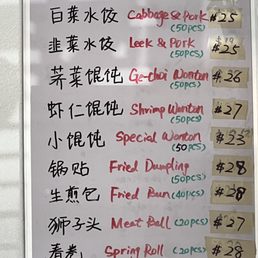 白菜水饺 Cabbage & Pork (50pcs) $25
韭菜水饺 Leek & Pork (50pcs) $25
荠菜馄饨 Ge-choi Wonton (50pcs) $26
虾仁馄饨 Shrimp Wonton (50pcs) $27
小馄饨 Special Wonton (50pcs) $23
锅贴 Fried Dumpling (50pcs) $28
生煎包 Fried Bun (40pcs) $28
狮子头 Meat Ball (20pcs) $27
春卷 Spring Roll (20pcs) $28